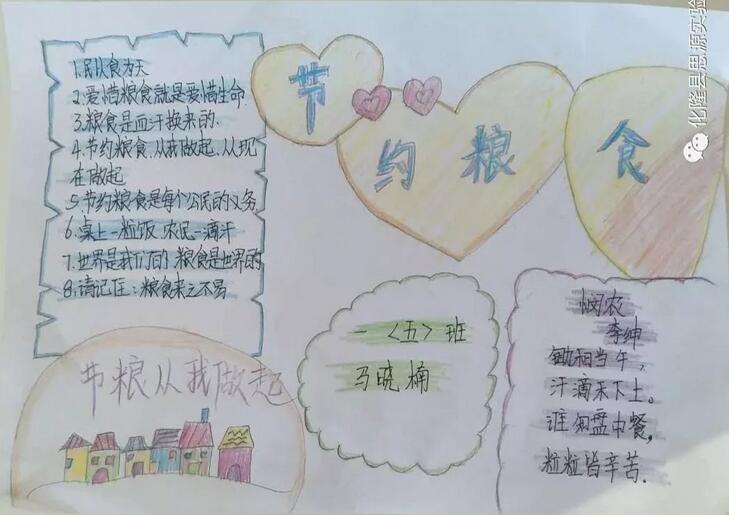 1.民以食为天
2.爱惜粮食就是爱惜生命
3.粮食是血汗换来的.
4.节约粮食.从我做起、从现
在做起
5.节约粮食是每个公民的义务
6.桌上一粒饭 农民一滴汗
7.世界是我们的 粮食是世界的
8.请记住:粮食来之不易
节约粮食
节粮从我做起
一〈五〉班
马晓楠
悯农
李绅
锄禾当午,
汗滴禾下土。
谁知盘中餐,
粒粒皆辛苦.
化隆县思源实验